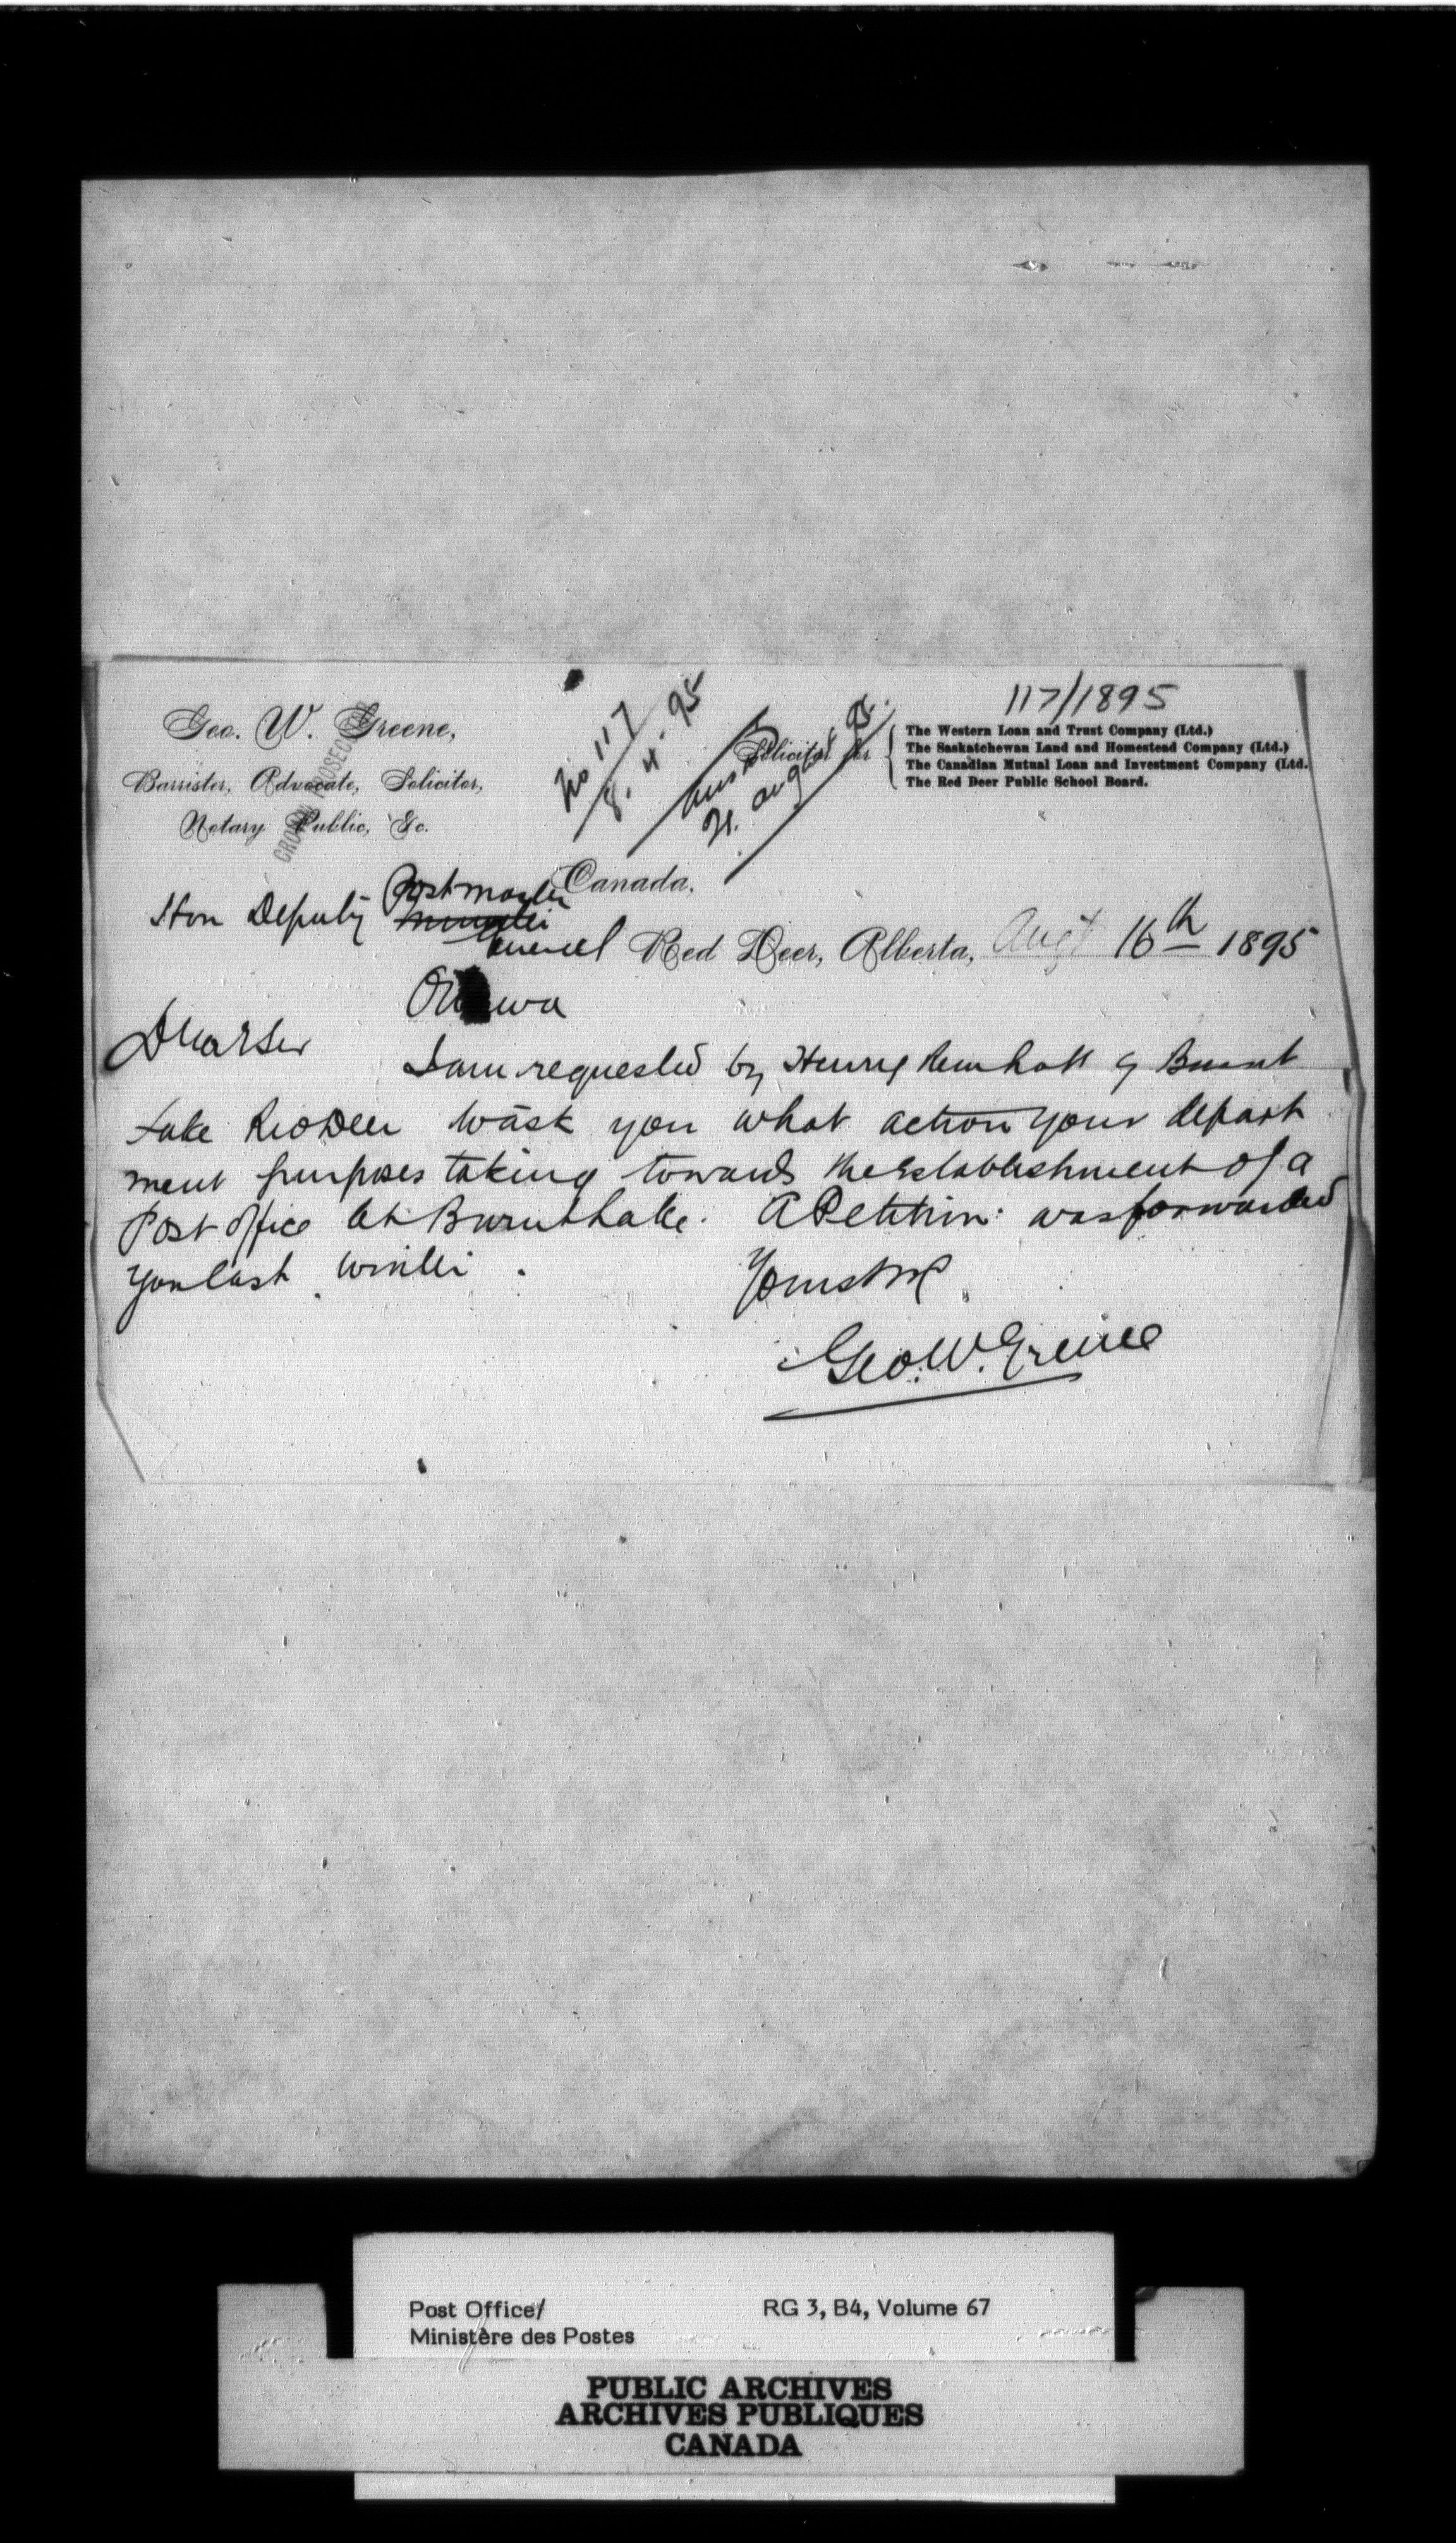 117/1895
No 117
8. 4. 95
21. August 95.
Geo. W. Greene,
Barrister, Advocate, Solicitor,
Notary Public, &c.
CROWN PROSECUTOR
Solicitor for
The Western Loan and Trust Company (Ltd.)
The Saskatchewan Land and Homestead Company (Ltd.)
The Canadian Mutual Loan and Investment Company (Ltd.
The Red Deer Public School Board.
Canada.
Hon Deputy Postmaster
General
Red Deer, Alberta, Augt 16th 1895
Ottawa
Dear Sir
I am requested by Henry of Burnt
Lake Red Deer to ask you what action your depart
ment purposes taking towards the establishment of a
Post office at Burnt Lake. A Petition was forwarded
you last winter.
Yours truly
Geo. W. Greene
Post Office/
Ministère des Postes
RG 3, B4, Volume 67
PUBLIC ARCHIVES
ARCHIVES PUBLIQUES
CANADA